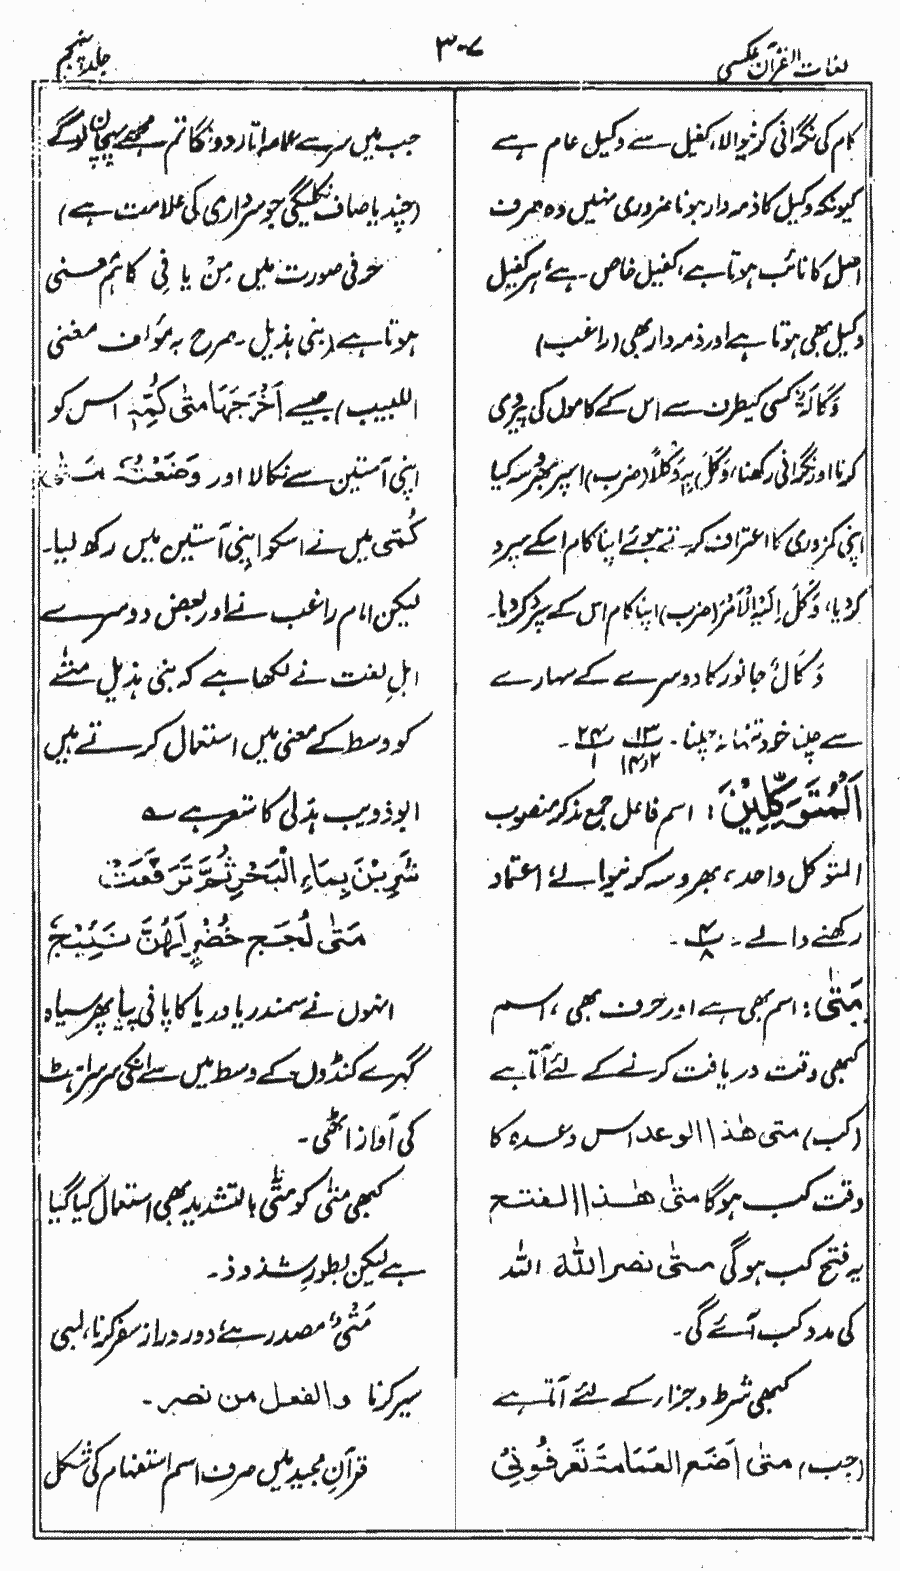 لغات القرآن عکسی
۳۰۷
جلد پنجم
کام کی نگرانی کرنیوالا، کفیل سے وکیل عام ہے
کیونکہ وکیل کا ذمہ دار ہونا ضروری نہیں وہ صرف
اصل کا نائب ہوتا ہے، کفیل خاص ہے، ہر کفیل
وکیل بھی ہوتا ہے اور ذمہ دار بھی (راغب)
وَکَالَۃٌ کسی کیطرف سے اس کے کاموں کی پیروی
کرنا اور نگرانی رکھنا، وَکَلَ بِہٖ وَکْلًا (ضرب) اسپر بھروسہ کیا
اپنی کمزوری کا اعتراف کرتے ہوئے اپنا کام اسکے سپرد
کردیا، وَکَلَ اِلَیْہِ الْاَمْرَ (ضرب) اپنا کام اس کے سپرد کردیا۔
وَکَالٌ جانور کا دوسرے کے سہارے
سے چلنا خود تنہا نہ چلنا۔ ۱۳ ۲۴
۲و۱۴ ۱
اَلْمُتَوَکِّلِیْنَ: اسم فاعل جمع مذکر منصوب
المتوکل واحد، بھروسہ کرنیوالے، اعتماد
رکھنے والے۔ ۴
۸
مَتٰی: اسم بھی ہے اور حرف بھی، اسم
کبھی وقت دریافت کرنے کے لئے آتا ہے
(کب) متی ھٰذا الوعد اس وعدہ کا
وقت کب ہوگا متٰی ھٰذا الفتح
یہ فتح کب ہوگی متٰی نصر اللہ اللہ
کی مدد کب آئے گی۔
کبھی شرط و جزار کے لئے آتا ہے
(جب) متٰی اَضَعِ العَمَامَۃَ تَعْرِفُونِیْ
جب میں سر سے عمامہ اتار دونگا تم مجھے پہچان لو گے
(چندیا صاف نکلیگی جو سرداری کی علامت ہے)
حرفی صورت میں مِنْ یا فِی کا ہم معنی
ہوتا ہے (بنی ہذیل۔ صرح بہ مؤلف مغنی
اللبیب) جیسے اَخْرَجَہَا مَتٰی کُمِّہٖ اس کو
اپنی آستین سے نکالا اور وَضَعْتُہٗ مَتٰی
کُمّی میں نے اسکو اپنی آستین میں رکھ لیا۔
لیکن امام راغب نے اور بعض دوسرے
اہلِ لغت نے لکھا ہے کہ بنی ہذیل متٰے
کو وسط کے معنی میں استعمال کرتے ہیں
ابو ذویب ہذلی کا شعر ہے ؎
شَرِبْنَ بِمَاءِ الْبَحْرِ ثُمَّ تَرَفَّعَتْ
مَتٰی لُجَجٍ خُضْرٍ لَہُنَّ نَئِیْجٌ
انہوں نے سمندر یا دریا کا پانی پیا پھر سیاہ
گہرے کنڈوں کے وسط میں سے انکی سرسراہٹ
کی آواز اٹھی۔
کبھی متٰی کو متّٰی بالتشدید بھی استعمال کیا گیا
ہے لیکن بطور شذوذ۔
مَتْیٌ مصدر ہے دور دراز سفر کرنا، لمبی
سیر کرنا والفعل من نصر۔
قرآن مجید میں صرف اسم استفہام کی شکل